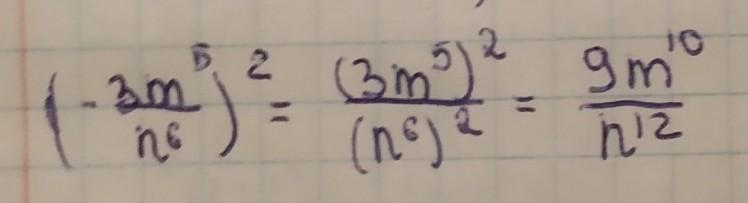 (-3m⁵/n⁶)² = (3m⁵)²/(n⁶)² = 9m¹⁰/n¹²